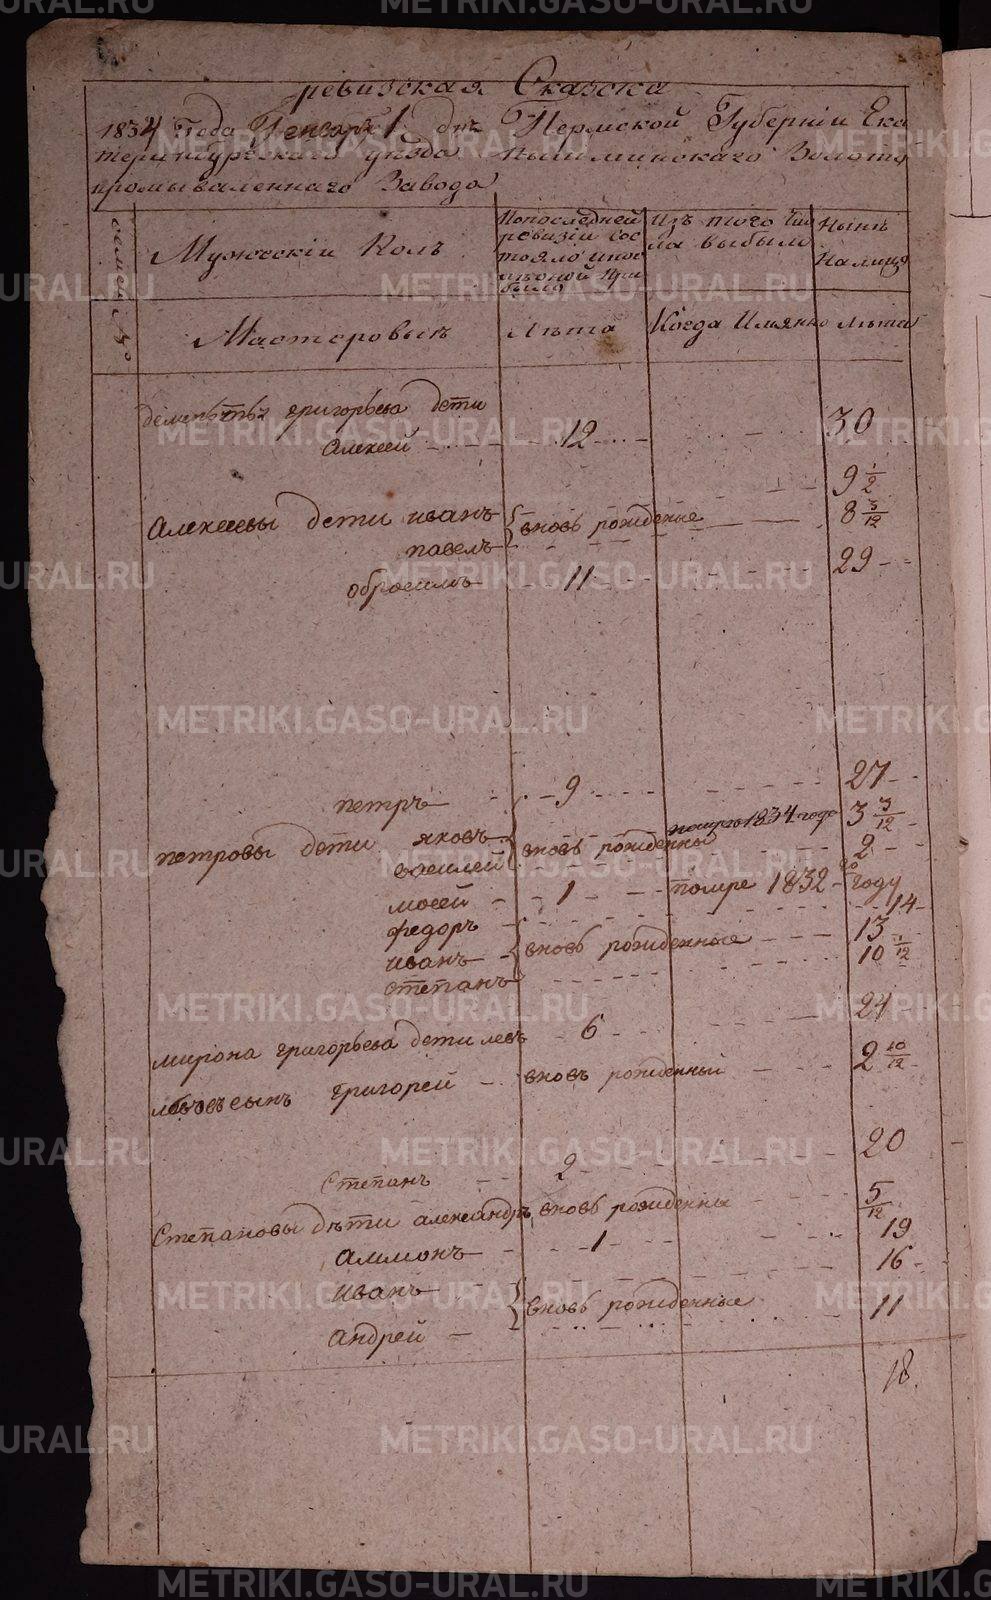 ревизская Сказка
1834 Года Генваря 1 дня Пермской Губернии Ека
теринбургскаго уезда Пышминскаго Золото
промываленнаго Завода
семьи №
Мужескій Полъ
Попоследней ревизіи состояло ипосле оной прибыло
Изъ того числа выбыло
Нынѣ Налицо
Мастеровыя
Лѣта
Когда Имянно
лѣта
дементья григорьева дети
Алексей 12 30
Алексеевы дети иванъ вновь рожденые 9 1/2
павелъ 8 3/12
обросимъ 11 29
петръ 9 27
петровы дети яковъ вновь рожденны померъ 1834 года 3 3/12
василей 2
мосей 1 помре 1832 го году
федоръ 14
иванъ вновь рожденные 13
степанъ 10 1/12
мирона григорьева дети левъ 6 24
львовъ сынъ григорей вновь рожденный 2 10/12
Степанъ 2 20
Степановы дѣти александръ вновь рожденны 5/12
Аммонъ 1 19
иванъ вновь рожденные 16
андрей 11
18
METRIKI.GASO-URAL.RU